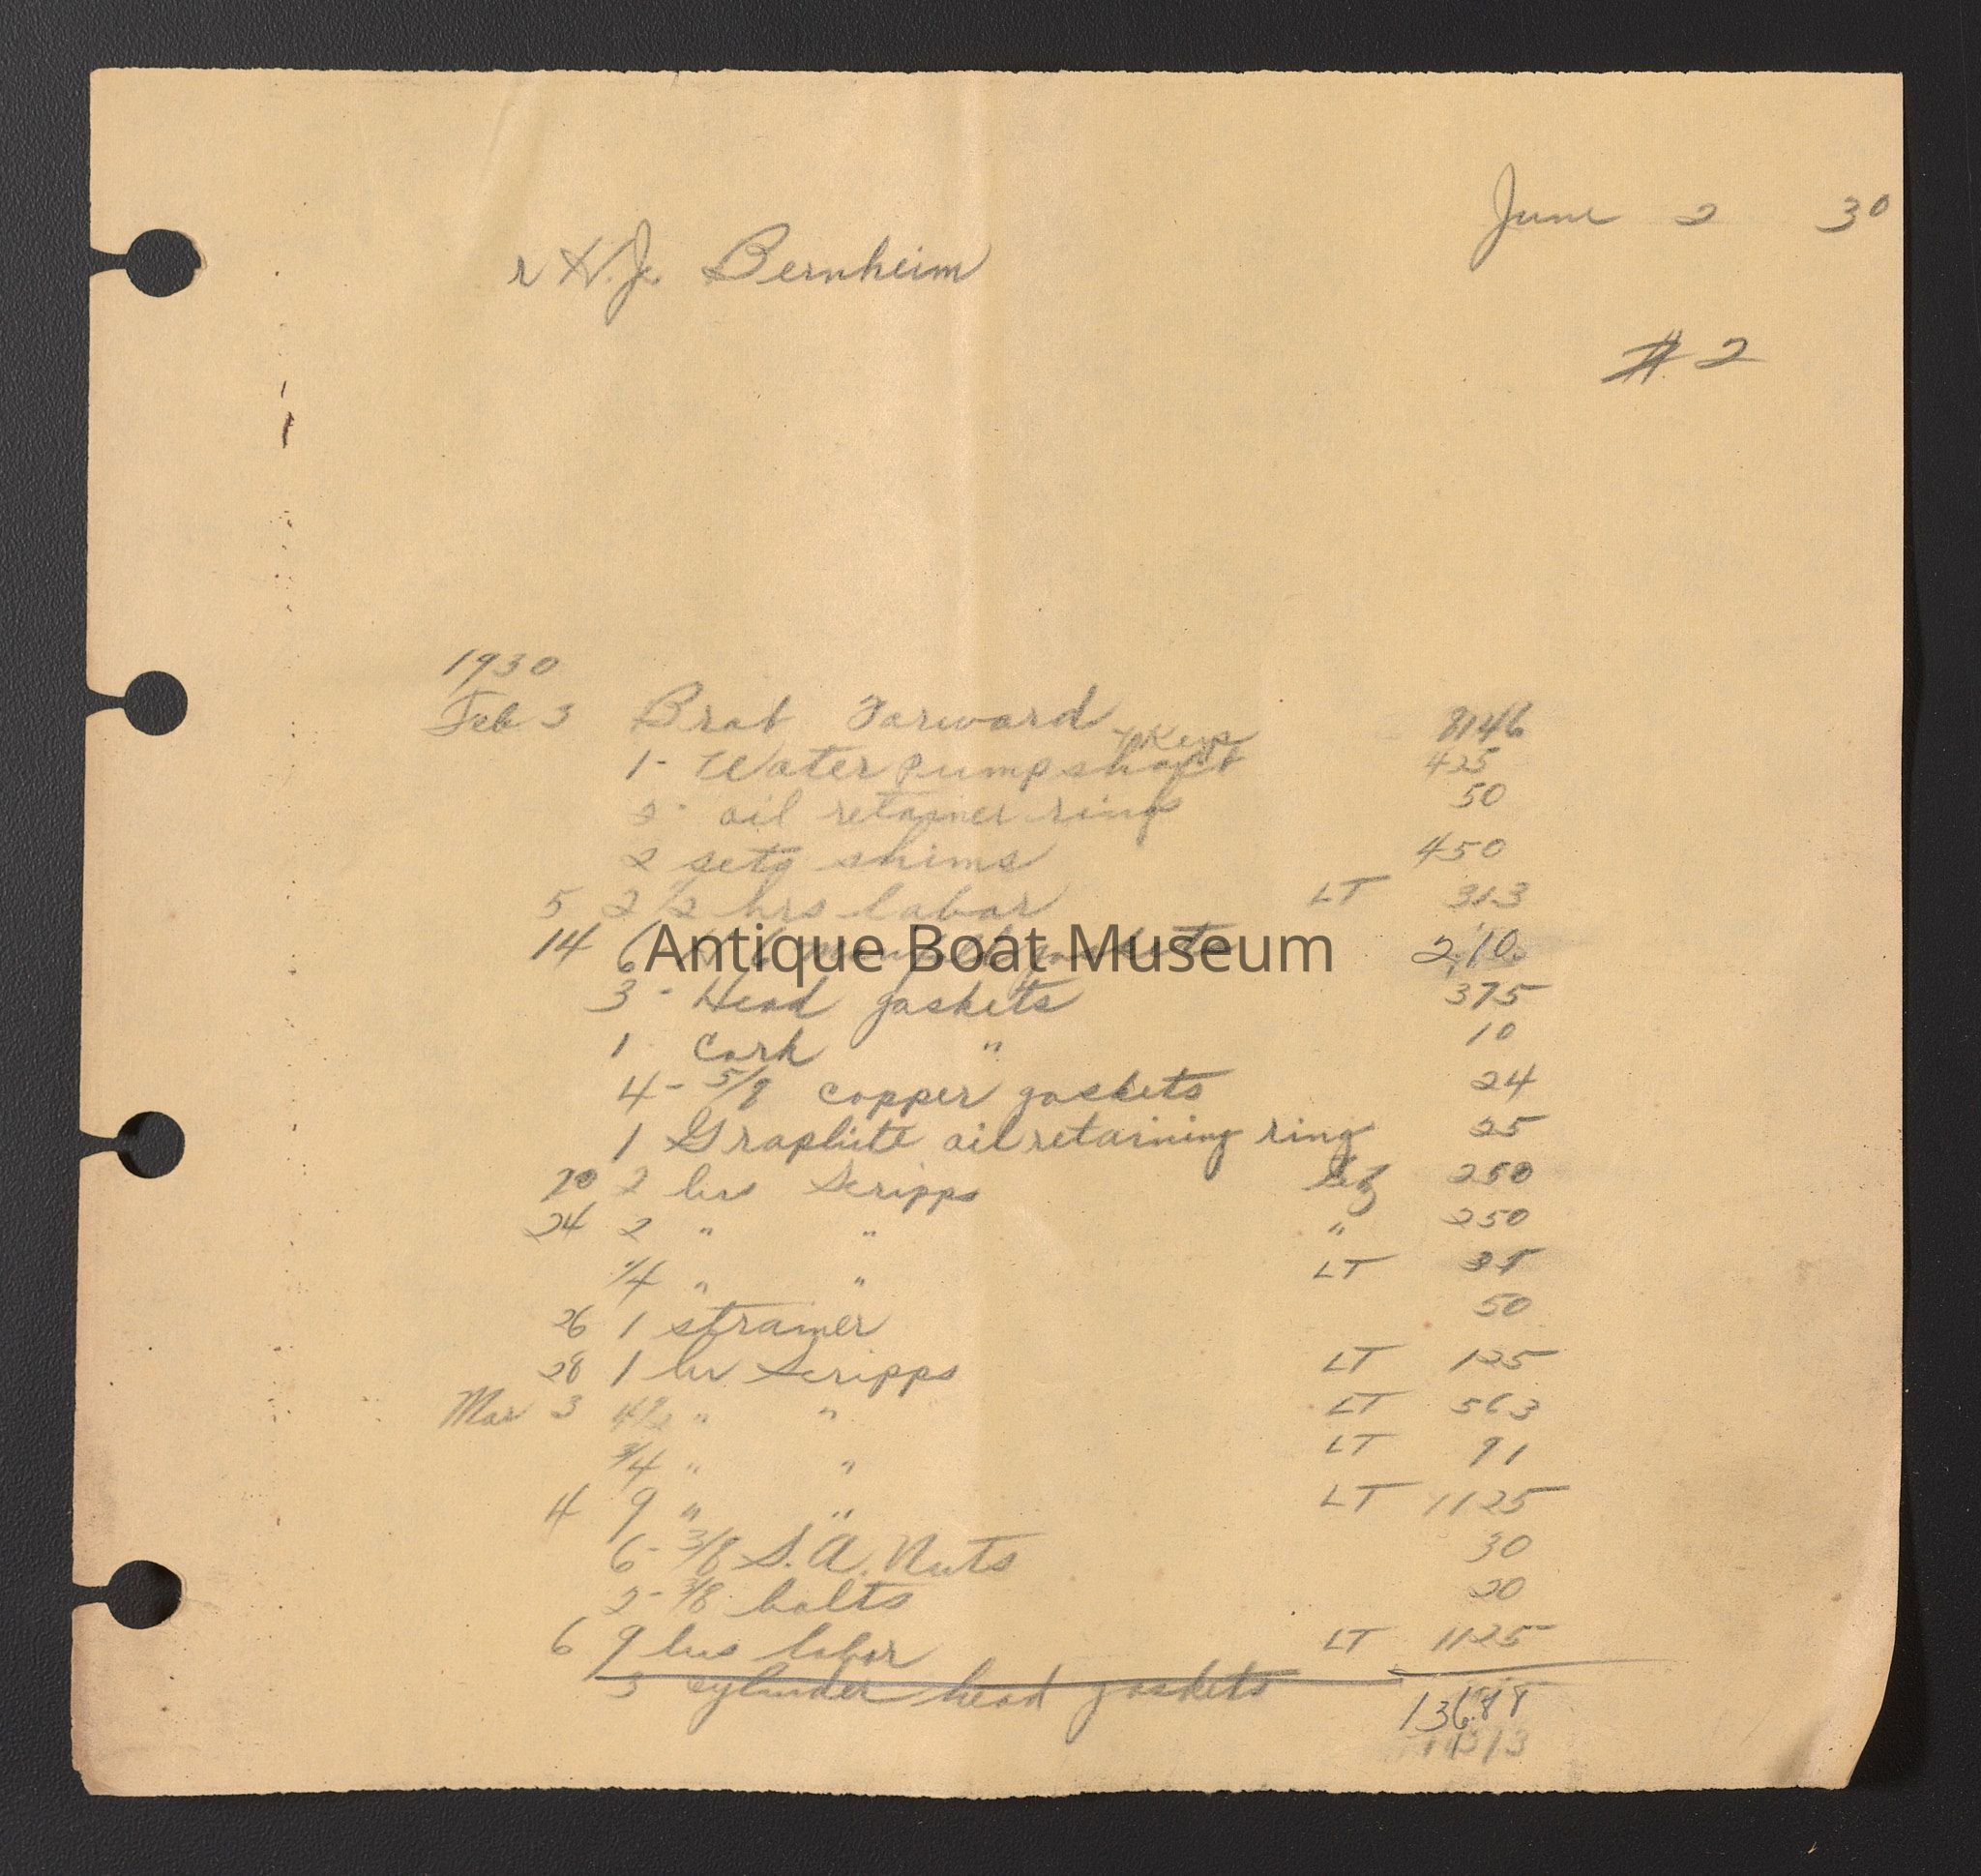 June 2 30
r H.J. Bernheim
# 2
1930
Feb 3 Brot Forward 8146
& Keys
1- Water pump shaft 425
2- oil retainer rings 50
2 sets shims 450
5 2 1/2 hrs labor LT 313
14 6 manifold gaskets 2.10
Antique Boat Museum
3 - Head gaskets 375
1 Cork " 10
4- 5/8 copper gaskets 24
1 Graphite oil retaining ring 25
20 2 hrs Scripps 250
24 2 " " " 250
1/4 " " LT
26 1 strainer 50
28 1 hr Scripps LT 125
Mar 3 4 1/2 " " LT 563
3/4 " " LT 91
4 9 " " LT 1125
6- 3/8 S.A. Nuts 30
2- 3/8 bolts 20
6 9 hrs labor LT 1125
3 cylinder head gaskets
136.88